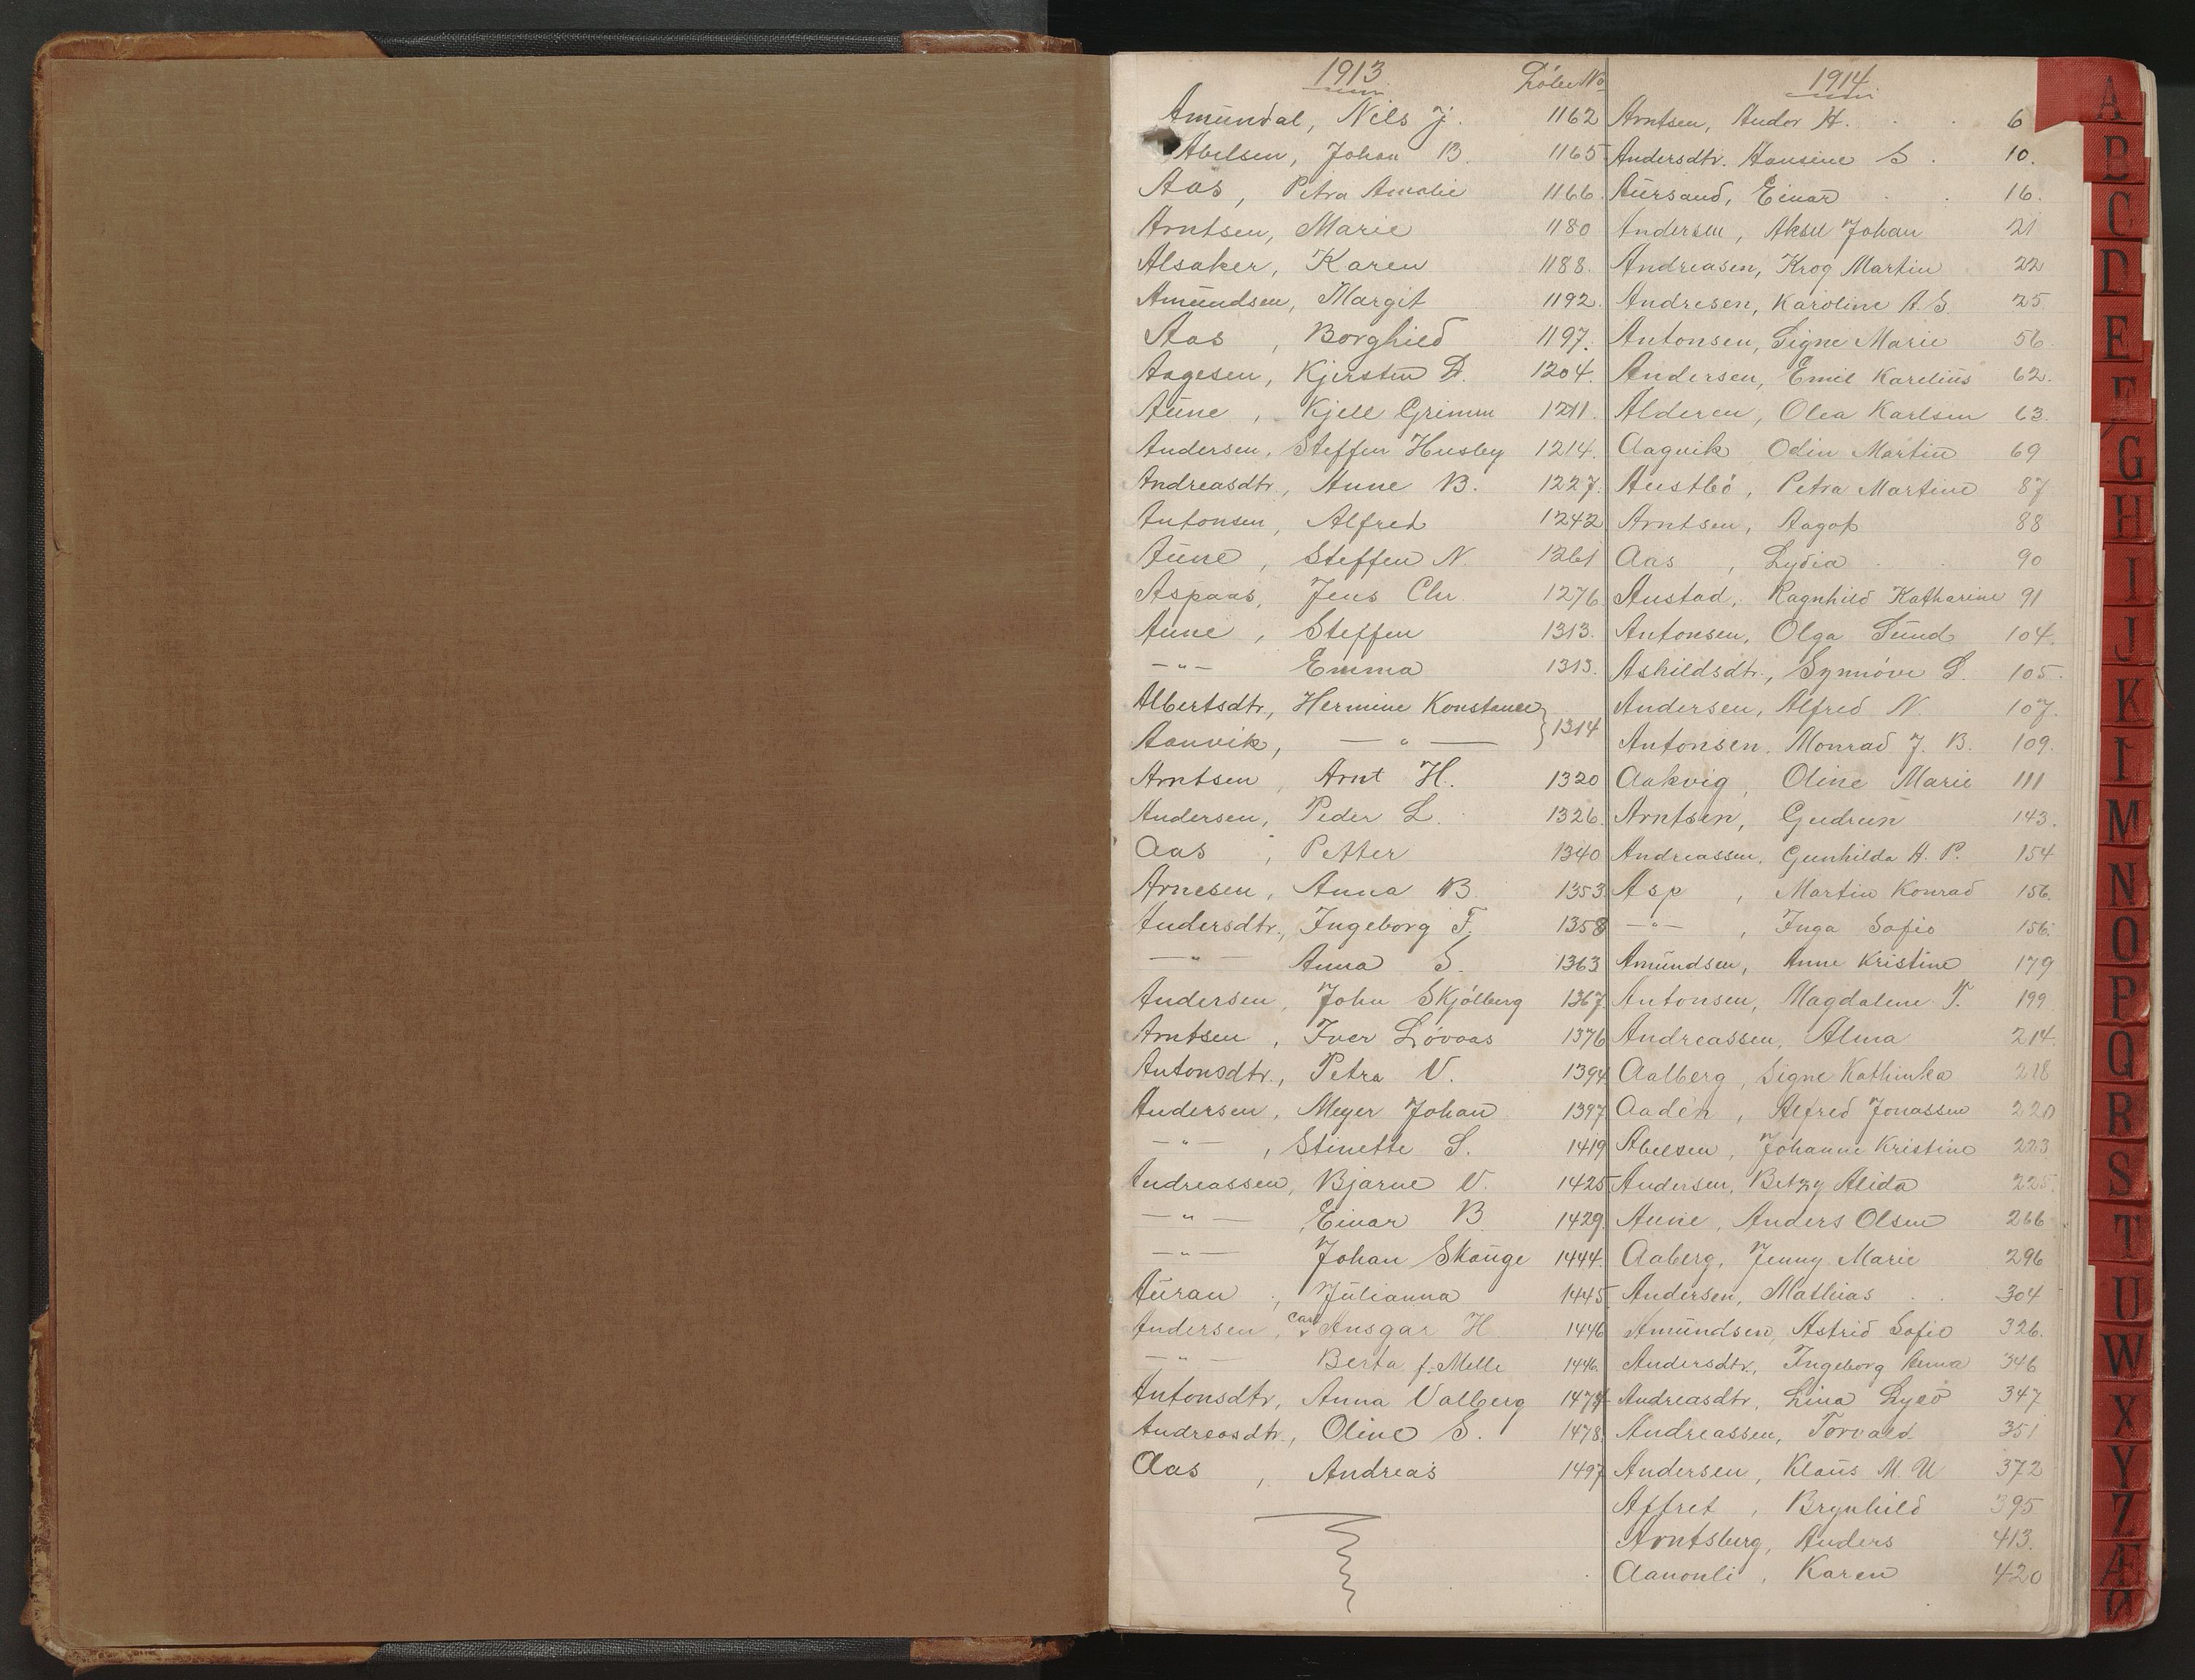 1913
Löbe No
Amundal, Nils J. 1162
Abelsen, Johan B. 1165
Aas, Petra Amalie 1166.
Arntsen, Marie 1180
Alsaker, Karen 1188.
Amundsen, Margit 1192.
Aas, Borghild 1197.
Aagesen, Kjerstin D. 1204.
Aune, Kjell Grimm 1211.
Andersen, Steffen Husby 1214.
Andreasdtr., Anne B. 1227.
Antonsen, Alfred 1242
Aune, Steffen N. 1261
Aspaas, Jens Chr. 1276
Aune, Steffen 1313.
—"— Emma 1313.
Albertsdtr., Hermine Konstance } 1314
Aanvik, —"—
Arntsen, Arnt H. 1320
Andersen, Peder L. 1326.
Aas, Petter 1340
Arnesen, Anna B. 1353
Andersdtr., Ingeborg F. 1358
—"— Anna S. 1363
Andersen, John Skjölberg 1367
Arntsen, Iver Lövaas 1376
Antonsdtr., Petra V. 1394
Andersen, Meyer Johan 1397
—"—, Stinette S. 1419
Andreassen, Bjarne V. 1425
—"— Einar B 1429.
—"— Johan Skauge 1444.
Auran, Julianna 1445
Andersen, Carl Ansgar H. 1446
—"— Berta f. Melle 1446.
Antonsdtr, Anna Valberg 1474
Andreasdtr., Oline S. 1478.
Aas, Andreas 1497
1914
Arntsen, Andor H. 6
Andersdtr. Hansine S. 10.
Aursand, Einar 16.
Andersen, Aksel Johan 21
Andreasen, Krog Martin 22
Andresen, Karoline A. S. 25
Antonsen, Signe Marie 56.
Andersen, Emil Karelius 62.
Alderen, Olea Karlsen 63.
Aagvik Odin Martin 69
Austbö, Petra Martine 87
Arntsen, Aagot 88
Aas, Lydia 90
Austad, Ragnhild Katharine 91
Antonsen, Olga Sund 104.
Askildsdtr., Synnöve L. 105.
Andersen, Alfred N. 107.
Antonsen, Monrad J. B. 109.
Aakvig, Oline Marie 111
Arntsen, Gudrun 143.
Andreassen, Gunhilda H. P. 154
Asp, Martin Konrad 156.
—"—, Inga Sofie 156.
Amundsen, Anne Kristine 179
Antonsen, Magdalene T. 199
Andreassen, Alma 214.
Aalberg, Signe Kathinka 218
Aadén, Alfred Jonassen 220
Abelsen, Johanne Kristine 223
Andersen, Betzy Alida 225.
Aune, Anders Olsen 266
Aaberg, Jenny Marie 296
Andersen, Mathias 304
Amundsen, Astrid Sofie 326.
Andersdtr., Ingeborg Anna 346
Andreasdtr, Lina 347
Andreassen, Torvald 351
Andersen, Klaus M. U 372
Affret, Brynhild 395
Arntsberg, Anders 413.
Aanonli, Karen 420
A
B
C
D
E
F
G
H
I
J
K
L
M
N
O
P
Q
R
S
T
U
W
X
Y
Z
Æ
Ø